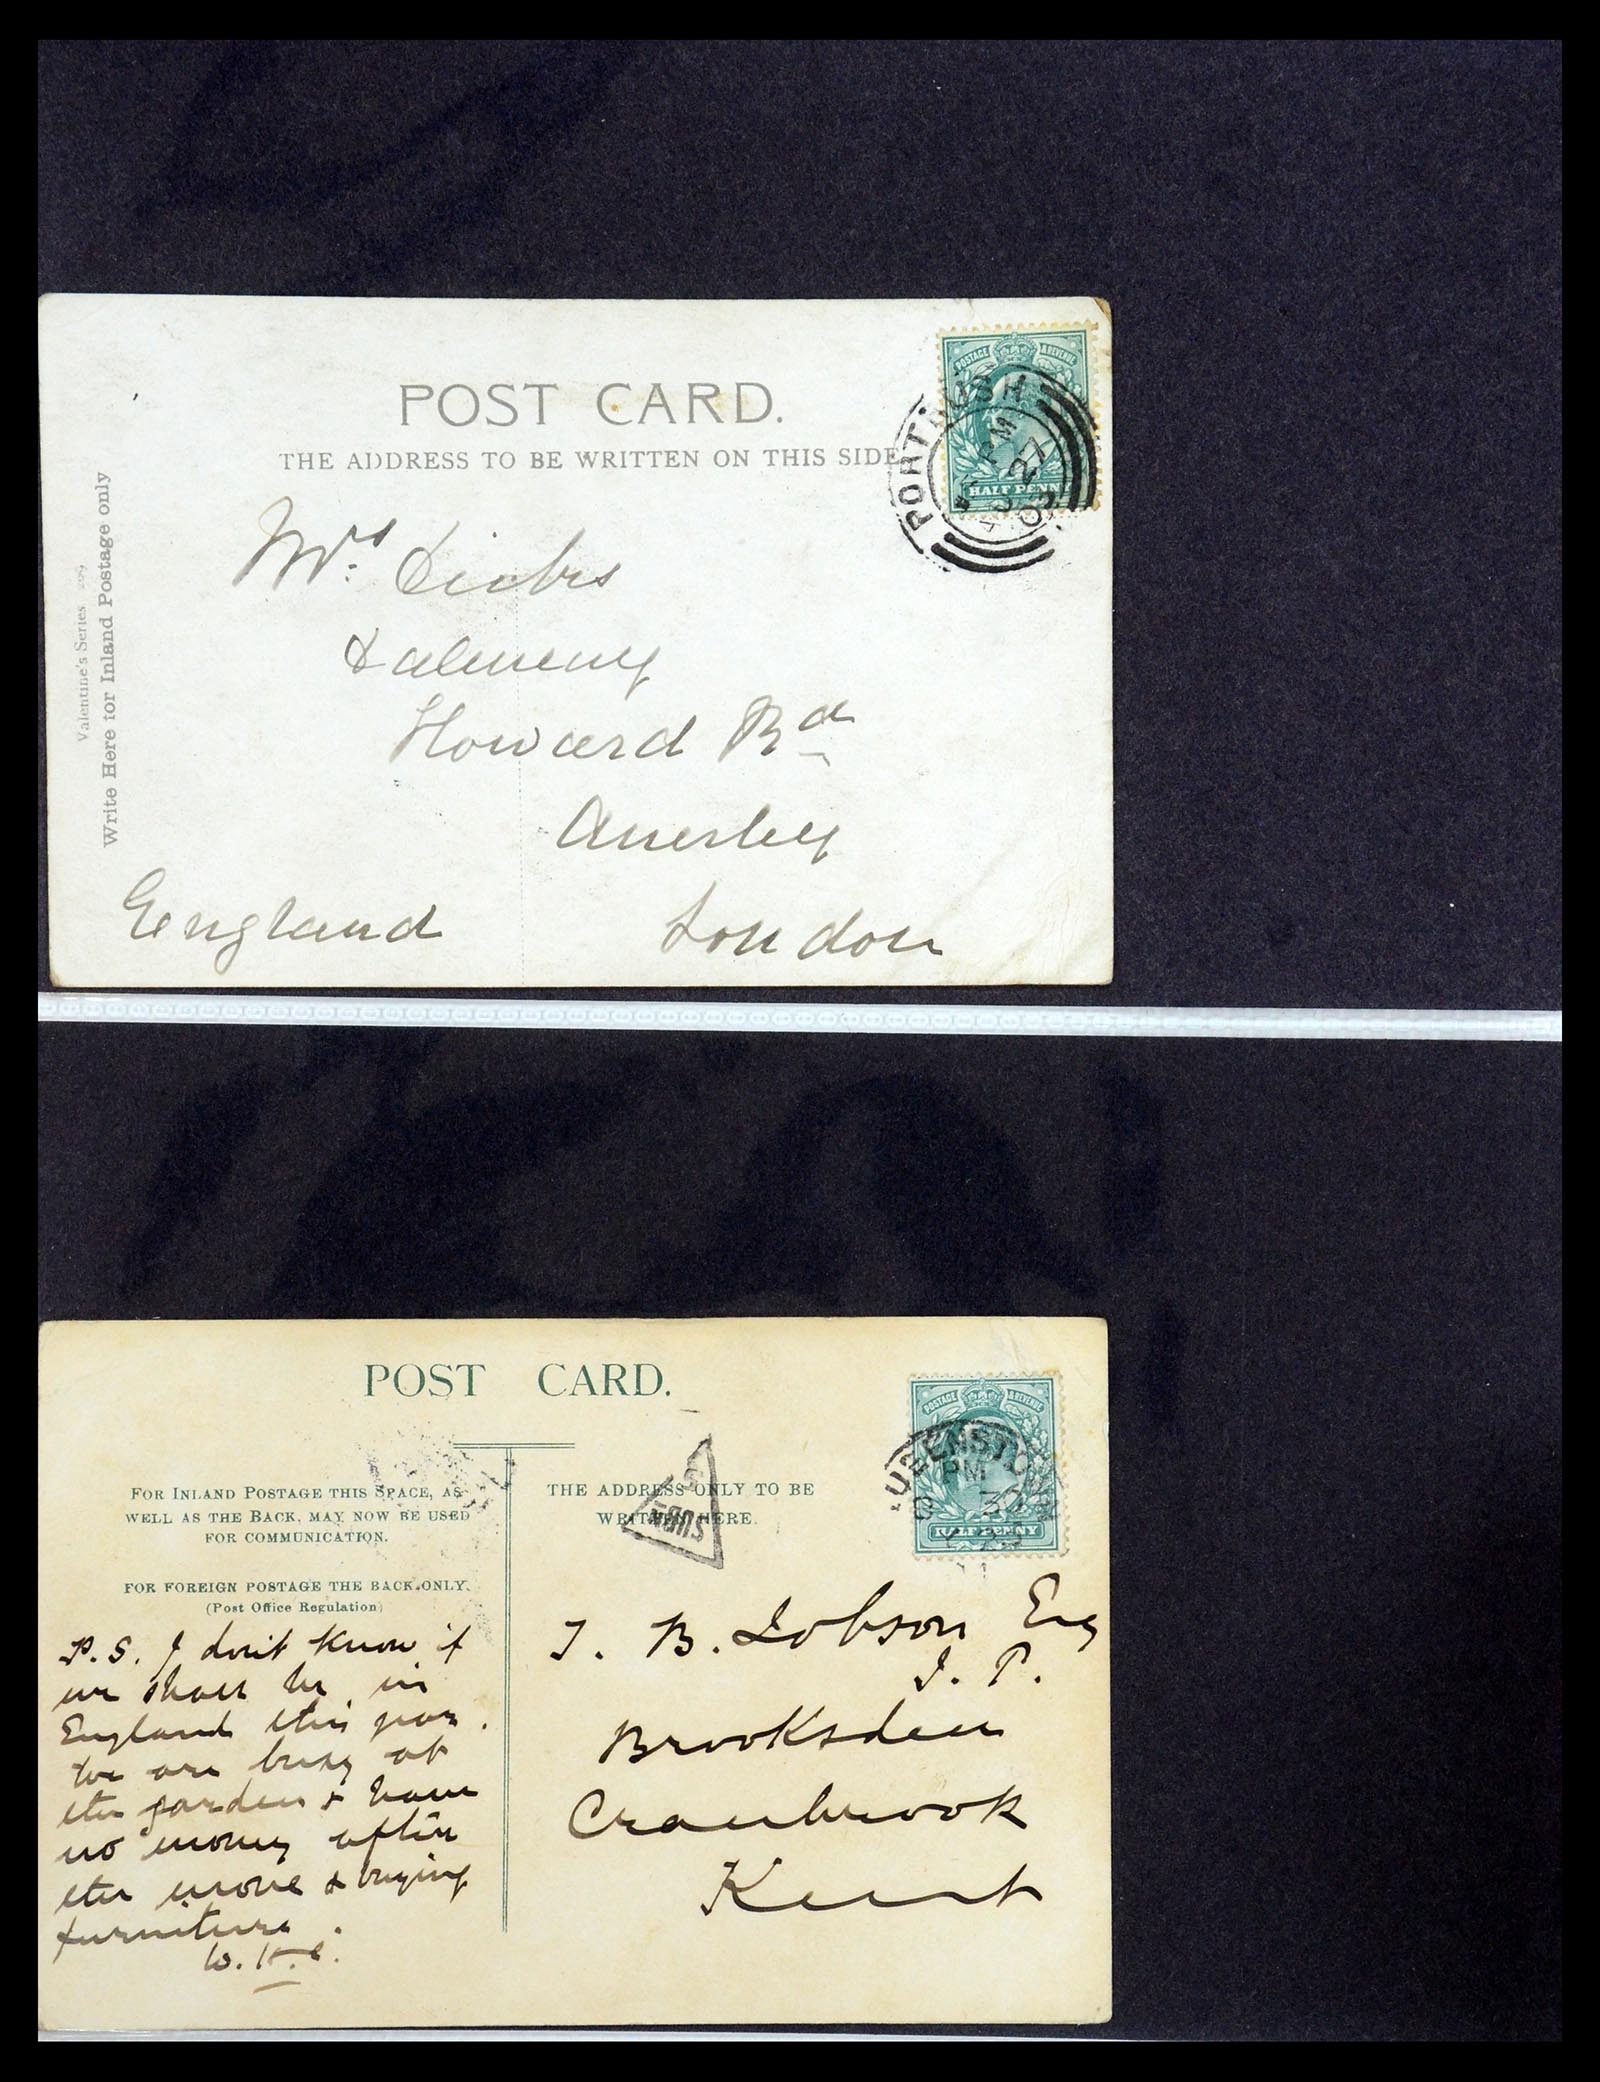 POST CARD.
THE ADDRESS TO BE WRITTEN ON THIS SIDE
POSTAGE & REVENUE
HALF PENNY
PORTRUSH
PM
AU 27
Valentine's Series
Write Here for Inland Postage only
Mrs.
Dalmeny
Howard Rd
Anerley
London
England
POST CARD.
FOR INLAND POSTAGE THIS SPACE, AS
WELL AS THE BACK, MAY NOW BE USED
FOR COMMUNICATION.
FOR FOREIGN POSTAGE THE BACK ONLY.
(Post Office Regulation)
P.S. I don't know if
we shall be in
England this year.
We are busy at
the garden & have
no money after
the move & buying
furniture.
W.H.
THE ADDRESS ONLY TO BE
WRITTEN HERE.
POSTAGE & REVENUE
HALF PENNY
QUEENSTOWN
PM
30
B. Hobson Esq
J. P.
Brooksden
Cranbrook
Kent